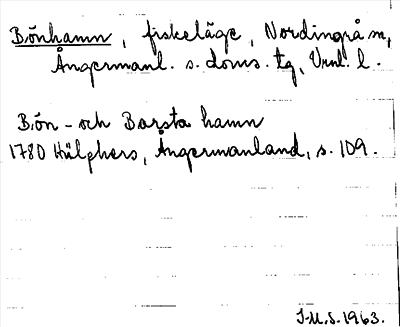 Bönhamn, fiskeläge, Nordingrå sn,
Ångermanl. s. doms. tg, Vnl. l.
Bön- och Barsta hamn
1780 Hülphers, Ångermanland, s. 109.
I.M.S. 1963.